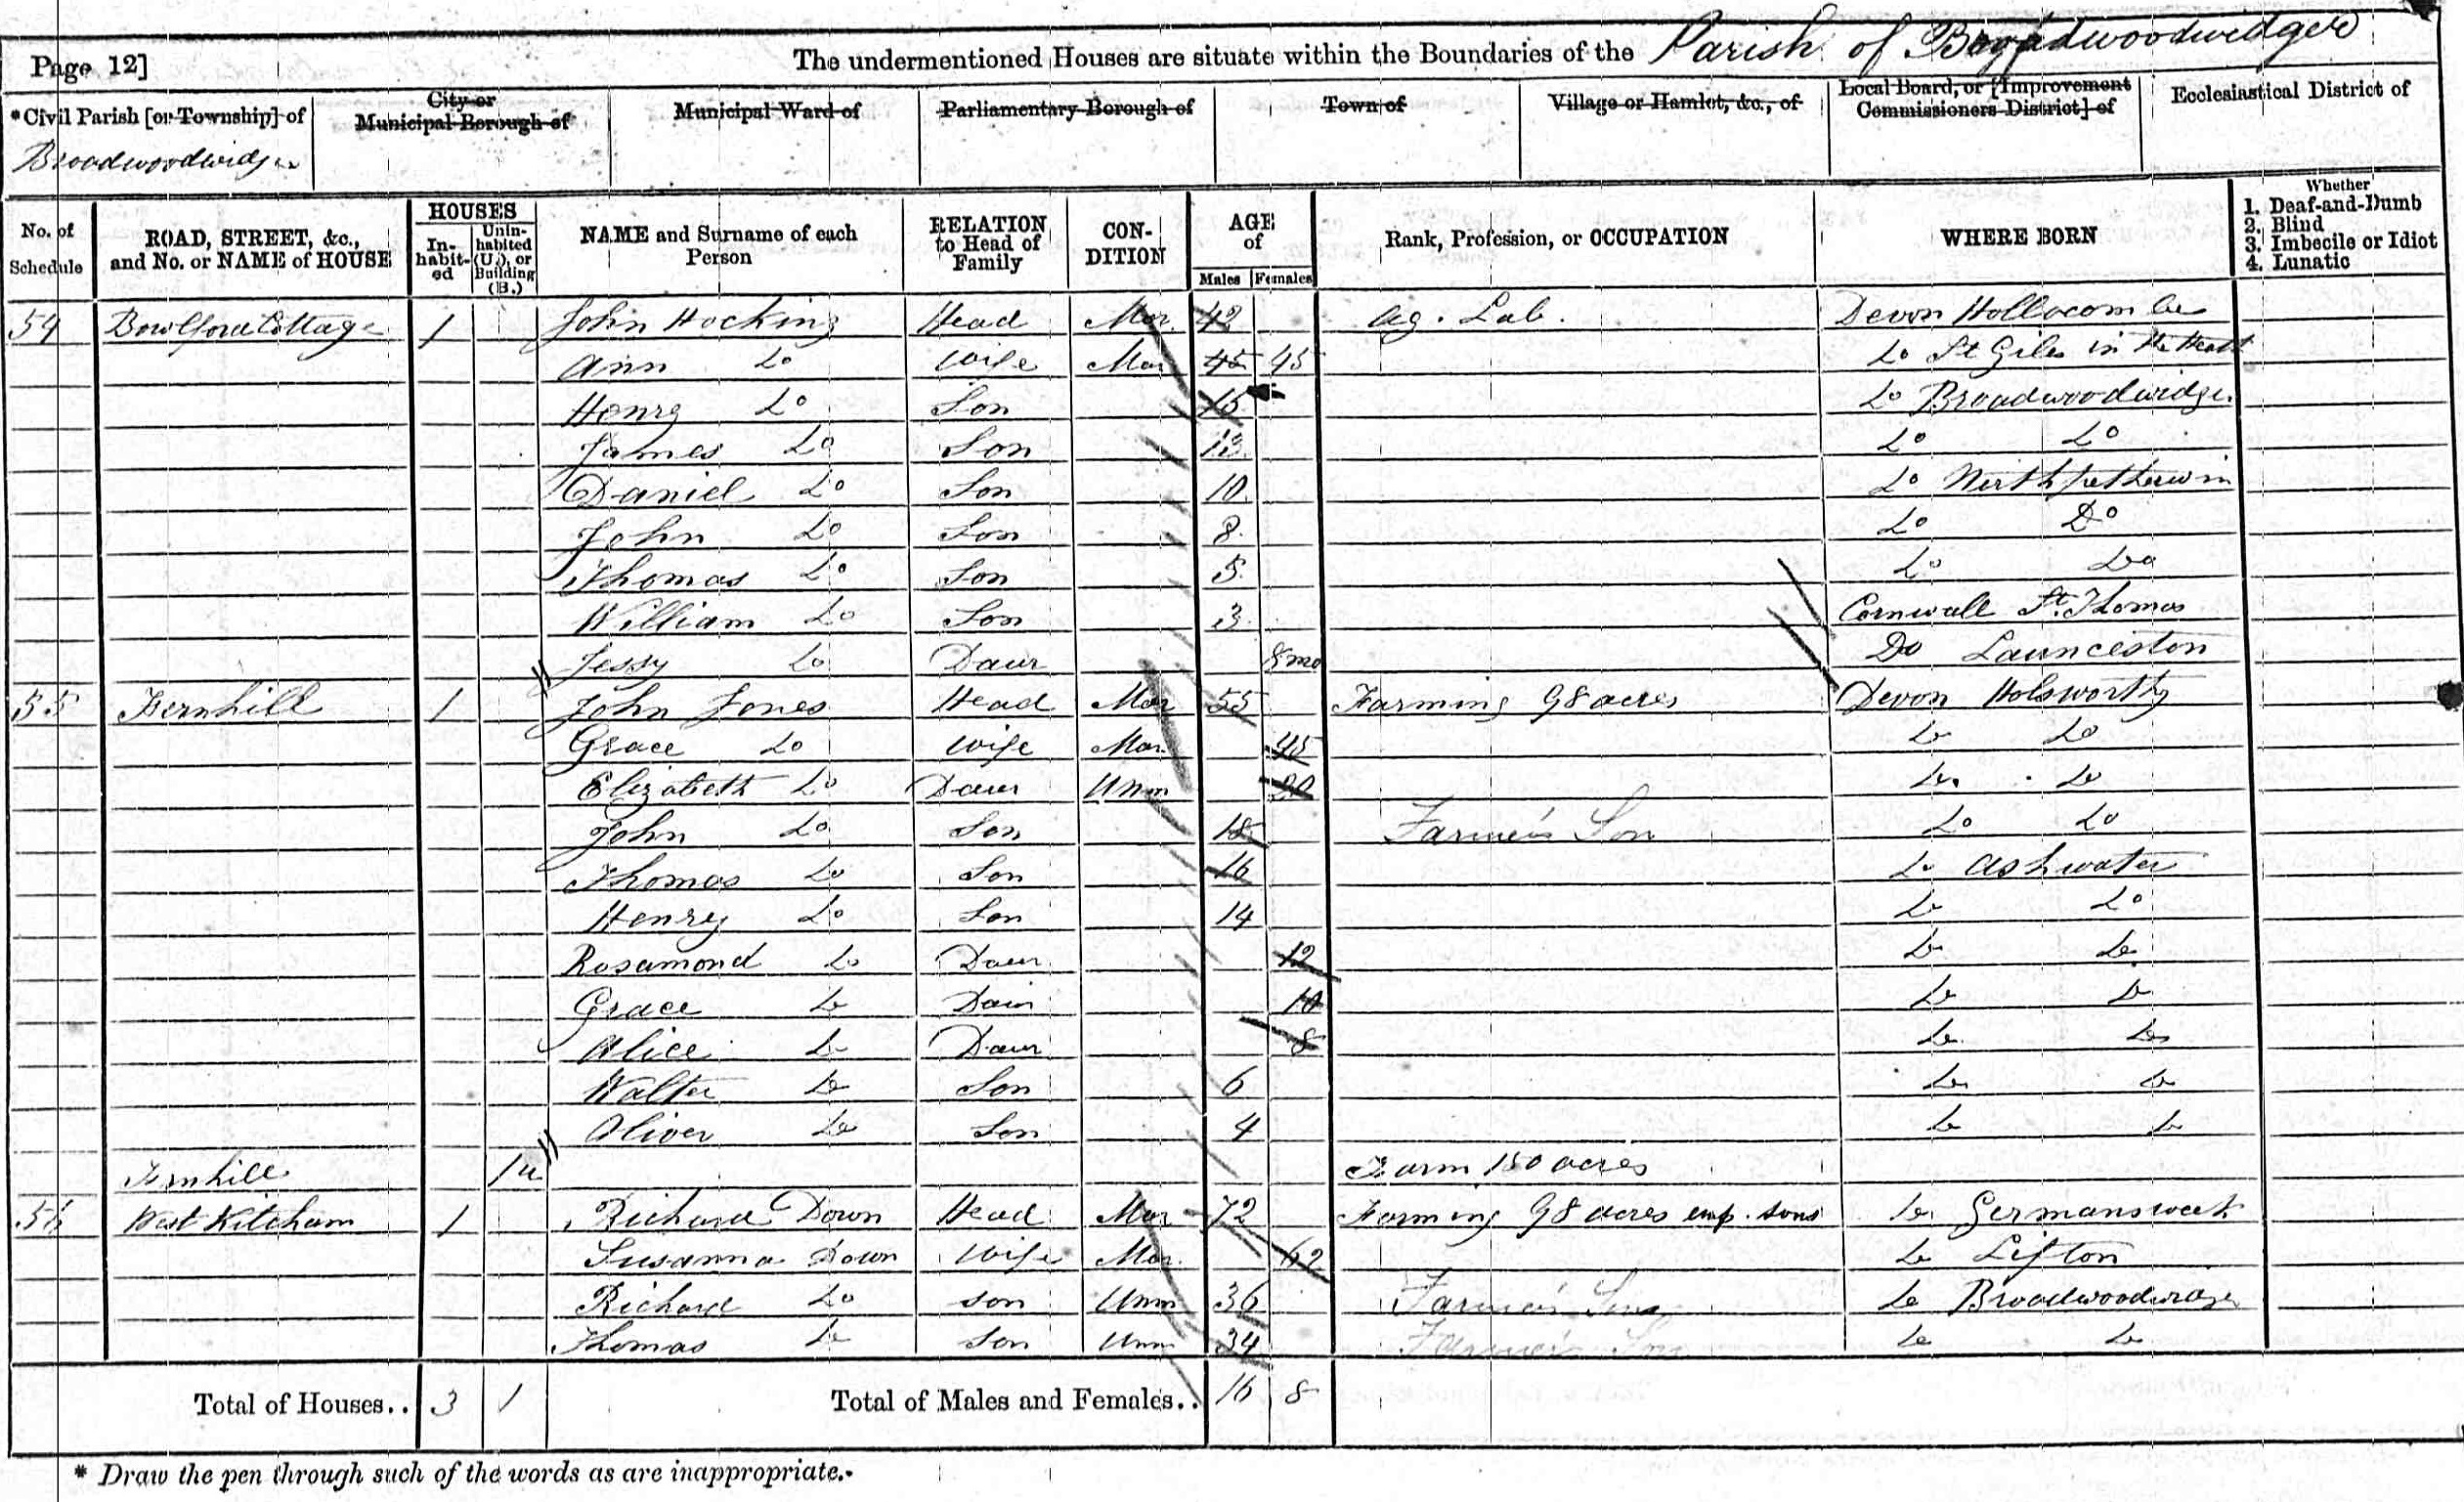 Page 12]
The undermentioned Houses are situate within the Boundaries of the Parish of Broadwoodwidger
*Civil Parish [or Township] of Broadwoodwidger
City or Municipal Borough of
Municipal Ward of
Parliamentary Borough of
Town of
Village or Hamlet, &c., of
Local Board, or [Improvement Commissioners District] of
Ecclesiastical District of
No. of Schedule
ROAD, STREET, &c., and No. or NAME of HOUSE
HOUSES
In-habit-ed
Unin-habited (U.), or Building (B.)
NAME and Surname of each Person
RELATION to Head of Family
CON-DITION
AGE of
Males
Females
Rank, Profession, or OCCUPATION
WHERE BORN
Whether
1. Deaf-and-Dumb
2. Blind
3. Imbecile or Idiot
4. Lunatic
54 Cottage 1 John Hocking Head Mar 42 Ag. Lab. Devon Hollocombe
Ann Do Wife Mar 45 45 Do St Giles in the Heath
Henry Do Son 15 Do Broadwoodwidger
James Do Son 13 Do Do
Daniel Do Son 10 Do Northpetherwin
John Do Son 8 Do Do
Thomas Do Son 5 Do Do
William Do Son 3 Cornwall St. Thomas
Jessy Do Daur 8 mo Do Launceston
55 Fernhill 1 John Jones Head Mar 55 Farming 98 acres Devon Holsworthy
Grace Do Wife Mar 45 Do Do
Elizabeth Do Daur Unm 20 Do Do
John Do Son 18 Farmer's Son Do Do
Thomas Do Son 16 Do Ashwater
Henry Do Son 14 Do Do
Rosamond Do Daur 12 Do Do
Grace Do Daur 10 Do Do
Alice Do Daur 8 Do Do
Walter Do Son 6 Do Do
Oliver Do Son 4 Do Do
Fernhill 1u Farm 150 acres
56 West Kitcham 1 Richard Down Head Mar 72 Farming 98 acres emp. sons Do Germansweek
Susanna Down Wife Mar 62 Do Lifton
Richard Do Son Unm 36 Farmer's Son Do Broadwoodwidger
Thomas Do Son Unm 34 Farmer's Son Do Do
Total of Houses.. 3 1 Total of Males and Females.. 16 8
* Draw the pen through such of the words as are inappropriate.